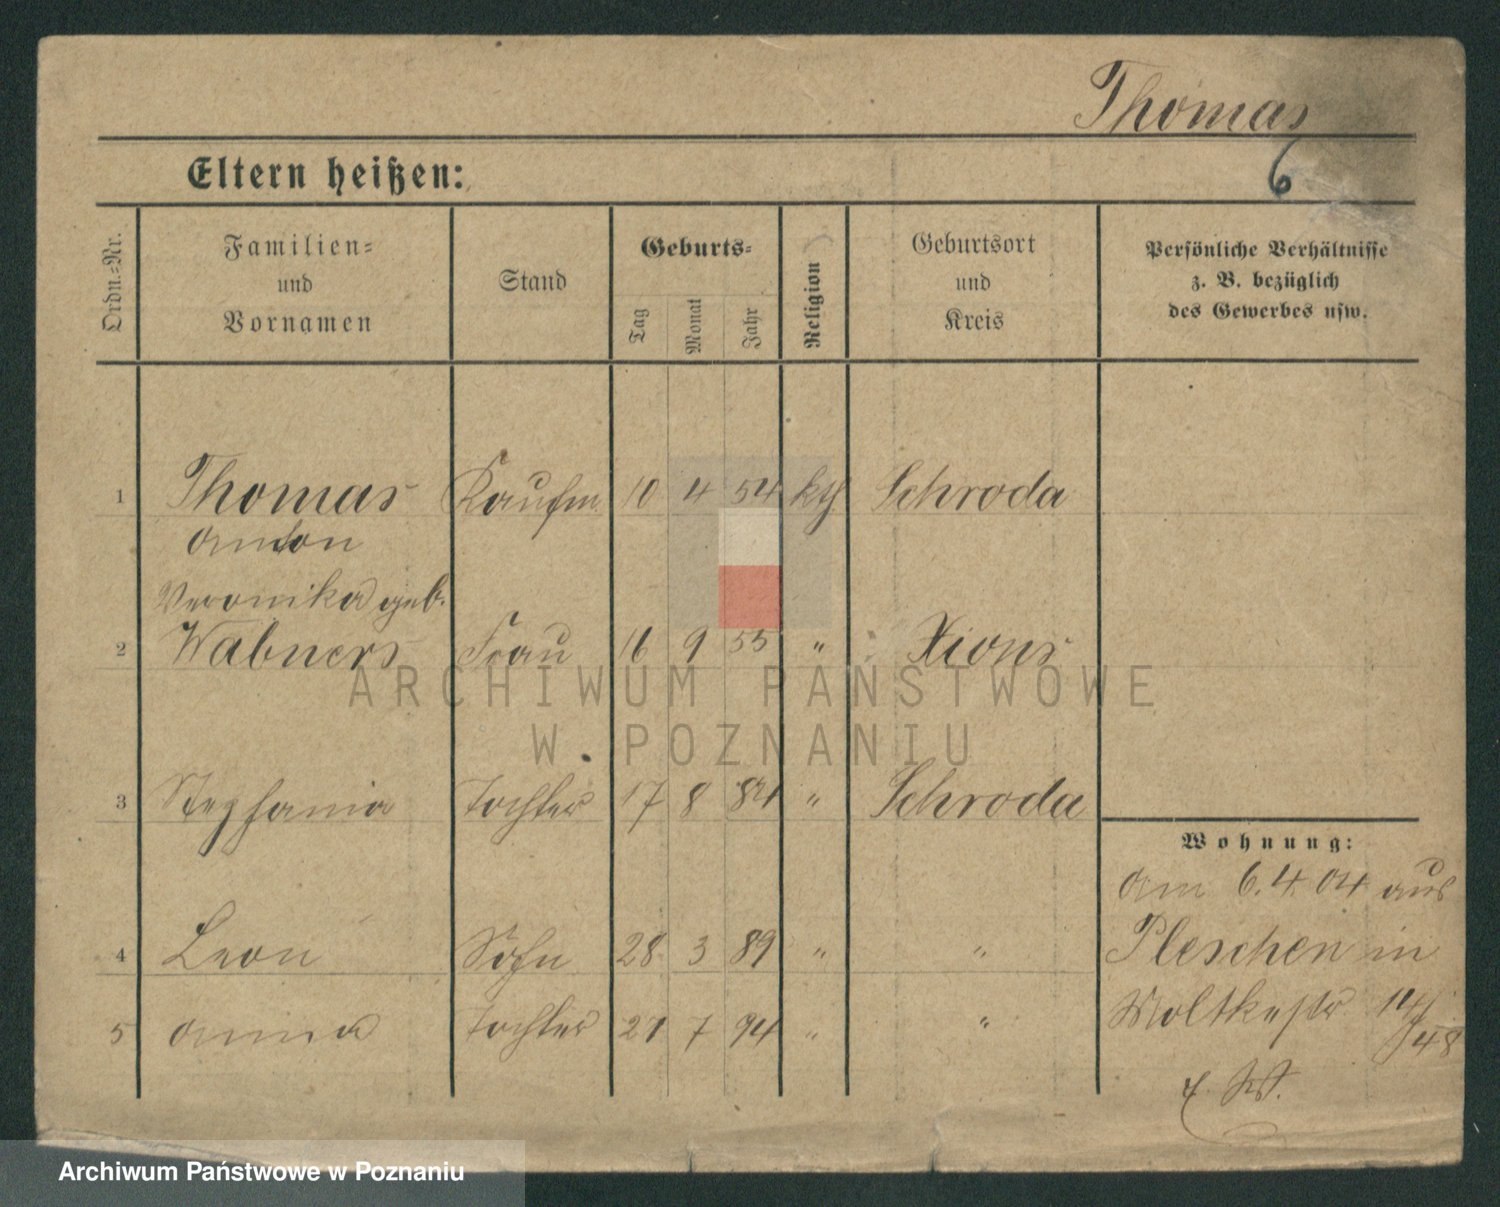 Thomas
6
Eltern heißen:
Ordn.=Nr.
Familien=
und
Vornamen
Stand
Geburts=
Tag
Monat
Jahr
Religion
Geburtsort
und
Kreis
Persönliche Verhältnisse
z. B. bezüglich
des Gewerbes usw.
1 Thomas Kaufm. 10 4 54 kth Schroda
Anton
Veronika geb.
2 Wabners Frau 16 9 55 " Xions
ARCHIWUM PAŃSTWOWE
W POZNANIU
3 Stephania Tochter 17 8 84 " Schroda
Wohnung:
am 6.4.04 aus
4 Leon Sohn 28 3 89 " " Pleschen in
5 Anna Tochter 21 7 94 " " Moltkestr 14/
48
Archiwum Państwowe w Poznaniu